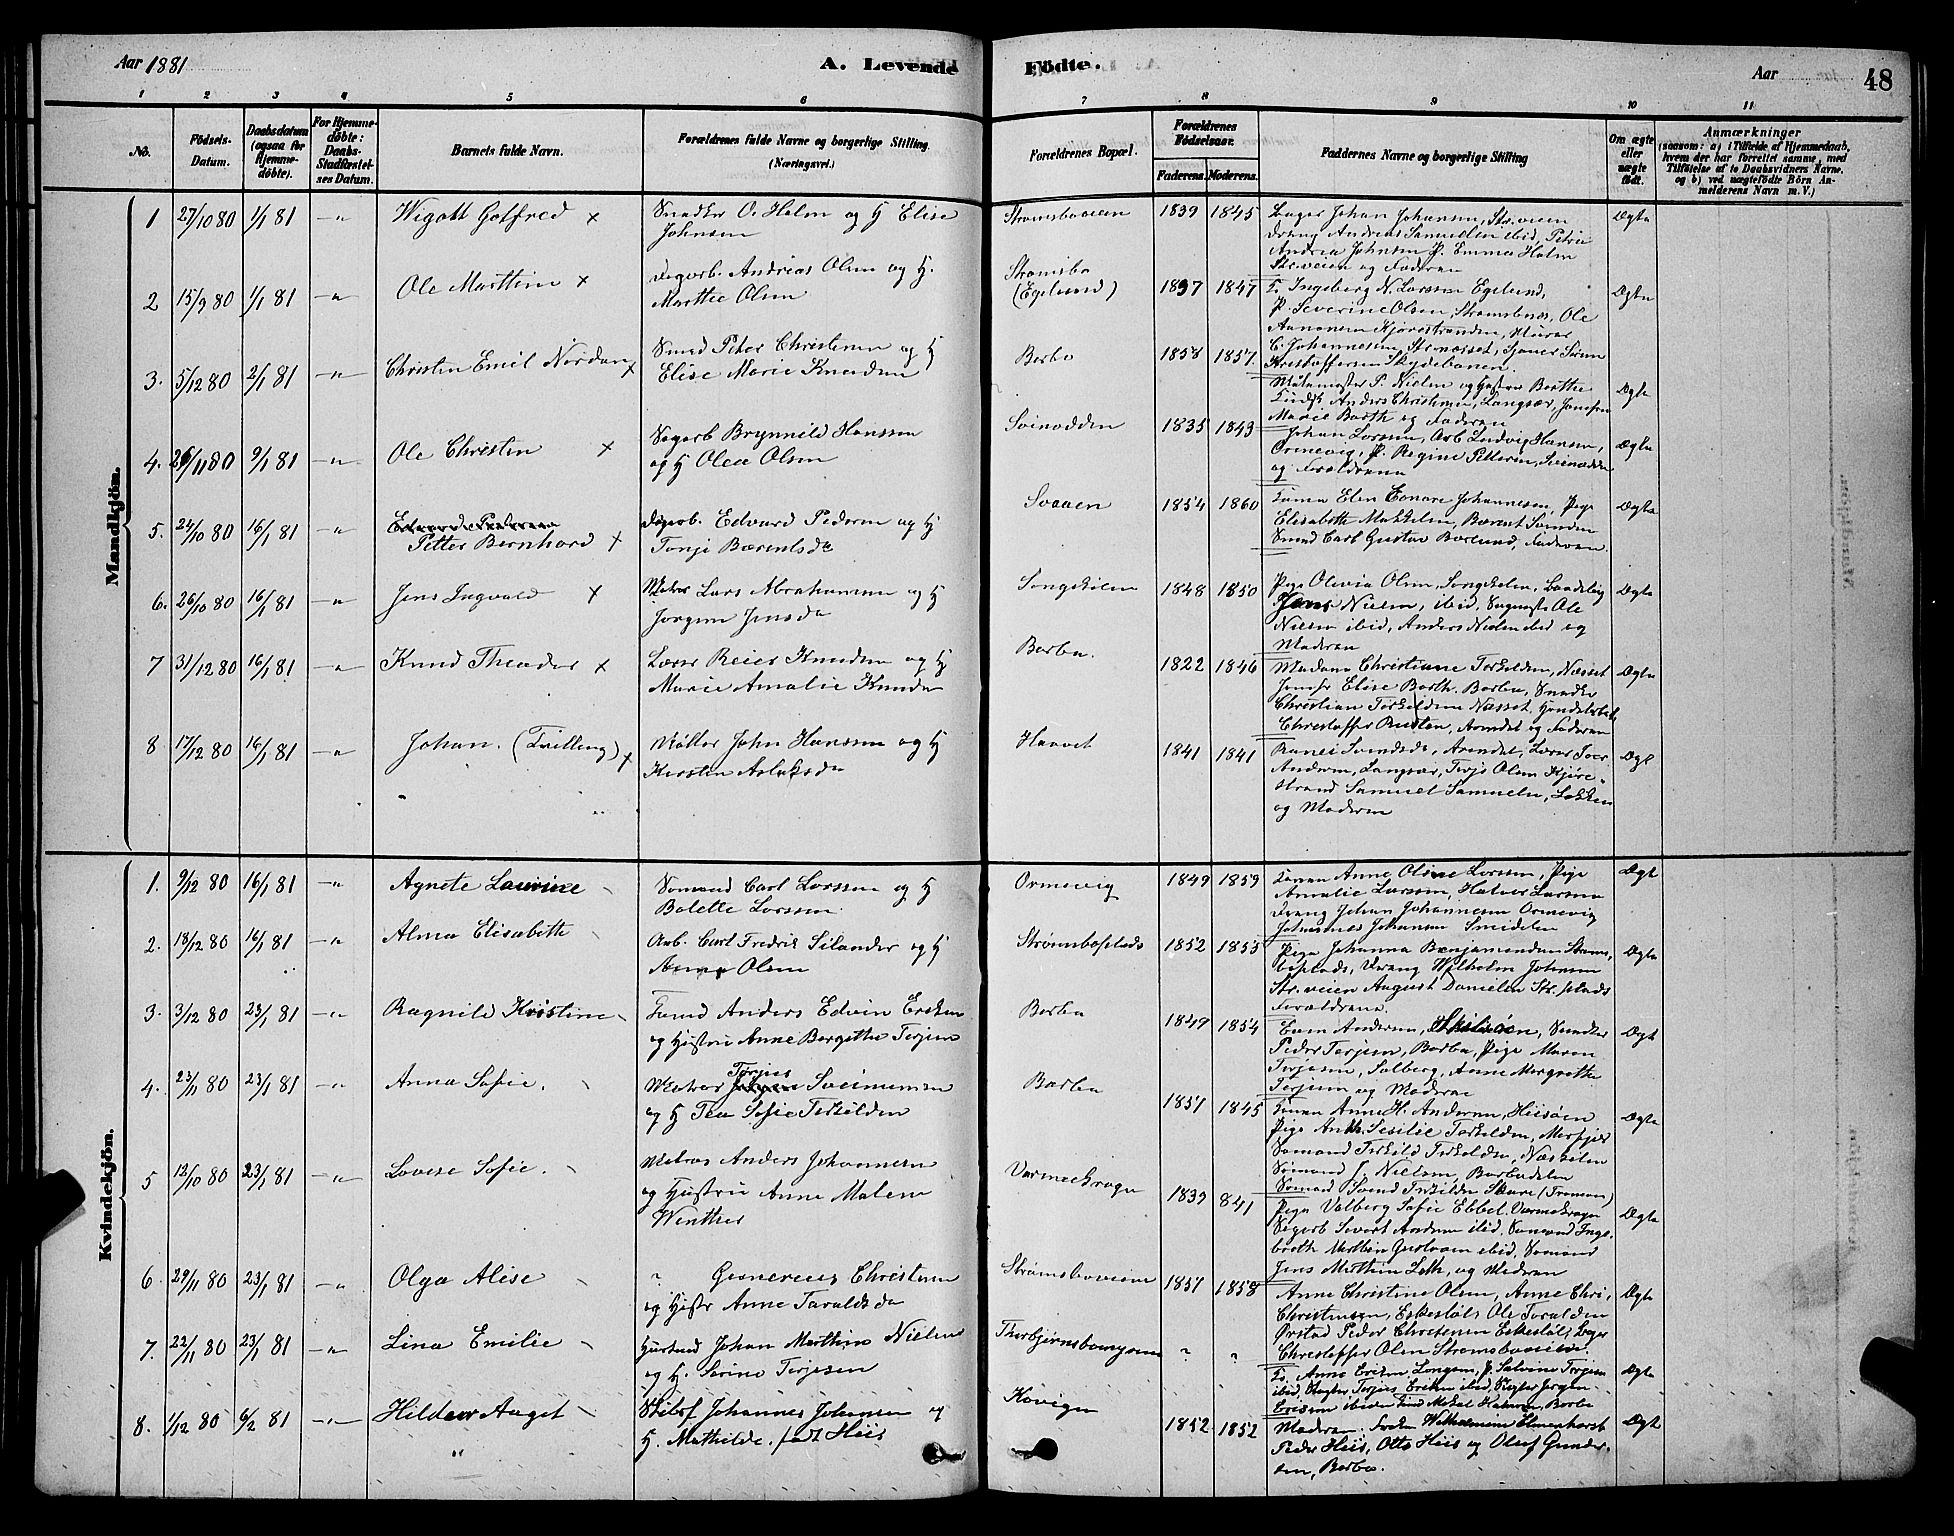 Aar 1881
A. Levende Födte.
Aar
48
1 2 3 4 5 6 7 8 9 10 11
No.
Födsels-Datum.
Daabsdatum (ogsaa for Hjemmedöbte).
For Hjemmedöbte: Daabs-Stadfæstelses Datum.
Barnets fulde Navn.
Forældrenes fulde Navne og borgerlige Stilling (Næringsvei.)
Forældrenes Bopæl.
Forældrenes Födselsaar.
Faderens. Moderens.
Faddernes Navne og borgerlige Stilling
Om ægte eller uægte födt.
Anmærkninger
(saasom: a) i Tilfælde af Hjemmedaab, hvem der har forrettet samme, med Tilföielse af to Daabsvidners Navne, og b) ved uægtefödte Börn Anmelderens Navn m. V.)
Mandkjön.
1 27/10 80 1/1 81 -"- Wigott Gotfred x
Snedker O. Holm og H Elise
Johnsen
Strømsboveien 1839 1845
Johan Johansen, Str.veien
Drang Andreas Samuelsen ibid, Petrie
Andrea Johnsen P. Emma Holm
Str.veien og Faderen
Ægte
2 15/9 80 1/1 81 -"- Ole Marthin x
Dagarb. Andreas Olsen og H.
Marthe Olsen
Strømsbo
(Egelund)
1837 1847
F. Ingeborg N. Larssen Egelund,
P. Severine Olsen, Strømsbnes, Ole
Aanonsen Kjørrestranden, Murer
C. Johannesen, Strnesset, Søren
Kristoffersen Skydebanen.
Ægte
3. 5/12 80 2/1 81 -"- Christen Emil Nordan x
Smed Peter Christensen og H
Elise Marie Knudsen
Barbo 1858 1857
P. Nielsen og Hustru Berthe
Anders Christensen, Langsær,
Marie Barth og Faderen
Ægte
4. 26/11 80 9/1 81 -"- Ole Christen x
Brynnild Hanssen
og H Olea Olsen
Svinodden 1835 1843
Johan Larssen, Arb Ludvig Hansen,
Ormevig, P. Regine Pettersen, Svinodden
og Forældrene
Ægte
5. 24/10 80 16/1 81 -"-
Petter Bernhard x
Dagarb. Edvard Pedersen og H
Tonje Bærentsdr
Svaaen 1854 1860
Konen Elen Johannesen, Pige
Elisabeth Bærent Svendsen
Smed Carl Gustav Faderen.
Ægte
6. 26/10 80 16/1 81 -"- Jens Ingvald x
Matros Lars Abrahamsen og H
Jørgine Jensdr
Songekilen 1848 1850
Pige Olivia Olsen, Songekilen,
Jens Nielsen, ibid, Ole
Nielsen ibid, Anders Nielsen ibid og
Moderen
Ægte
7 31/12 80 16/1 81 -"- Knud Theodor x
Reier Knudsen og H
Marie Amalie Knudsen
Barbo. 1822 1846
Madame Christiane Terkeldsen, Næsset
Jomfr Elise Barth. Barbo, Snedker
Christian Terkeldsen Næsset,
Christoffer Arendal og Faderen
Ægte
8 17/12 80 16/1 81 -"- Johan. (Tvilling) x
John Hanssen og H
Kirsten Aslaksdr
Haavet 1841 1841
Svendsdr, Arendal,
Andersen, Langsær, Terje Olsen Kjørre-
strand Samuel Samuelsen, Løkken
og Moderen
Ægt
Kvindekjön.
1. 9/12 80 16/1 81 -"- Agnete Laurine
Sømand Carl Larssen og H
Bolette Larssen
Ormevig 1849 1859
Konen Anne Oline Larssen, Pige
Amalie Larssen, Halvor Larsen
Drang Johan Johannesen Ormevig
Johannes Johansen Smidelen
Ægt
2. 18/12 80 16/1 81 -"- Alma Elisabeth
Arb. Carl Fredrik Silander og H
Anna Olsen
Strømsboplads 1852 1853
Pige Johanna Benjaminsen Strøms-
boplads, Drang Wilhelm Johnsen
Str.veien August Danielsen Str.plads
Forældrene.
Ægte
3. 3/12 80 23/1 81 -"- Ragnild Kristine
Anders Edvin Eriksen
og Hustru Anne Bergithe Terjesen
Barbo 1849 1854
Andersen, Snedker
Peder Terjesen, Barbo, Pige Maren
Terjesen, Solberg, Anne Margrethe
Terjesen og Moderen
Ægt
4. 23/11 80 23/1 81 -"- Anna Sofie.
Matros Terjes Sveinumsen
og H Tea Sofie Terkildsen
Barbo 1857 1845
Konen Anne H. Andersen, Hisøen
Pige Anth. Sesilie Terkeldsen,
Sømand Terkild Terkeldsen, Næskilen
Sømand J. Nielsen,
Sømand Svend Terkildsen (Tromøen)
Ægte
5 12/10 80 23/1 81 -"- Lovise Sofie.
Matros Anders Johannesen
og Hustru Anne Malene
Winther
Varmekrogen 1839 841
Pige Valborg Sofie Ebbel, Varmekrogen
Sivert Andersen ibid, Sømand Inge-
breth Mathias Gustavsen ibid, Sømand
Jens Mathias Leth, og Moderen
Ægte
6 29/11 80 23/1 81 -"- Olga Alise
" Gunerius Christensen
og Hustr Anne Taraldsdr
Strømsboveien 1857 1858
Anne Christine Olsen, Anne Chri-
Christensen, Eskestøl, Ole Taraldsen
Ørstad Peder Christensen Eskestøl,
Christoffer Olsen Strømsboveien.
Ægte
7. 22/11 80 23/1 81 -"- Lina Emilie
Johan Marthin Nielsen
og H. Serine Terjesen
Thorbjørnsbougen " "
F. Anne Eriksen Longum, P. Salvine Terjesen
ibid, Terjes Eriksen ibid, Jørgen
Eriksen ibiden Hansen, Barbo
Moderen.
Ægte
8. 1/12 80 6/2 81 -"- Hildeur Aaget
Skibsf Johannes Johansen og
H. Mathilde. født Hiis
Kovigen 1852 1852
Frøken Wilhelmine
Peder Hiis, Otto Hiis og Oluf Gunder-
sen, Barbo.
Ægt